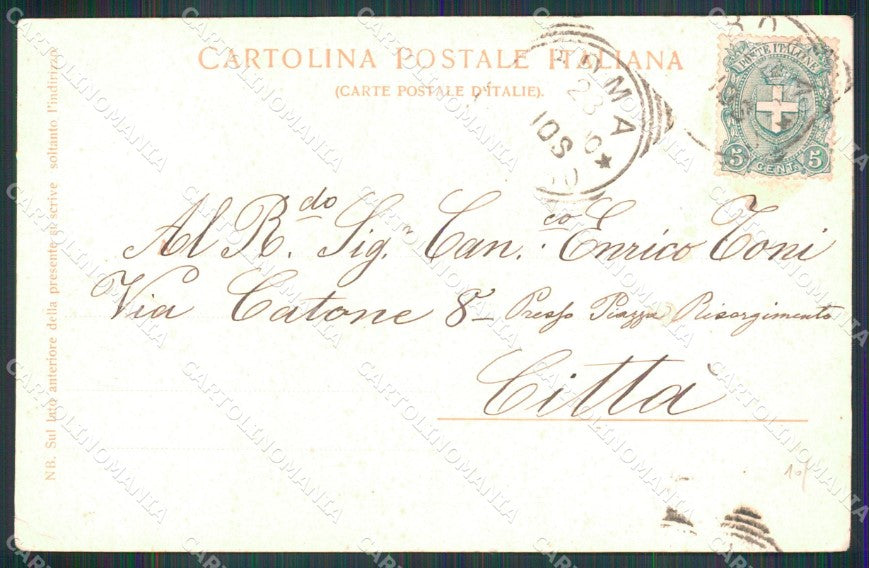 CARTOLINA POSTALE ITALIANA
(CARTE POSTALE D'ITALIE).
POSTE ITALIANE
5 CENT. 5
ROMA
23
10 S
Al R.do Sig.r Can.co Enrico Toni
Via Catone 8 - Presso Piazza Risorgimento
Città
NB. Sul lato anteriore della presente si scrive soltanto l'indirizzo
CARTOLINOMANIA